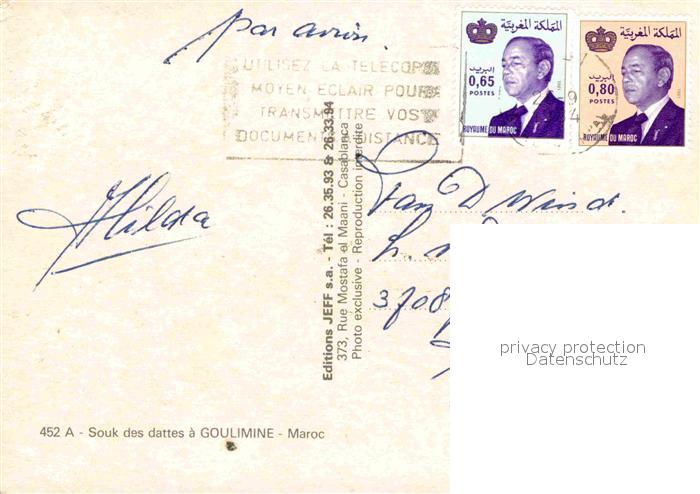 par avion.
UTILISEZ LA TELECOP
MOYEN ECLAIR POUR
TRANSMETTRE VOS
DOCUMENTS DISTANCE
المملكة المغربية
البريد
0,65
POSTES
ROYAUME DU MAROC
المملكة المغربية
البريد
0,80
POSTES
ROYAUME DU MAROC
Hilda
Editions JEFF s.a. - Tél : 26.35.93 & 26.33.94
373, Rue Mostafa el Maani - Casablanca
Photo exclusive - Reproduction interdite
3708
privacy protection
Datenschutz
452 A - Souk des dattes à GOULIMINE - Maroc